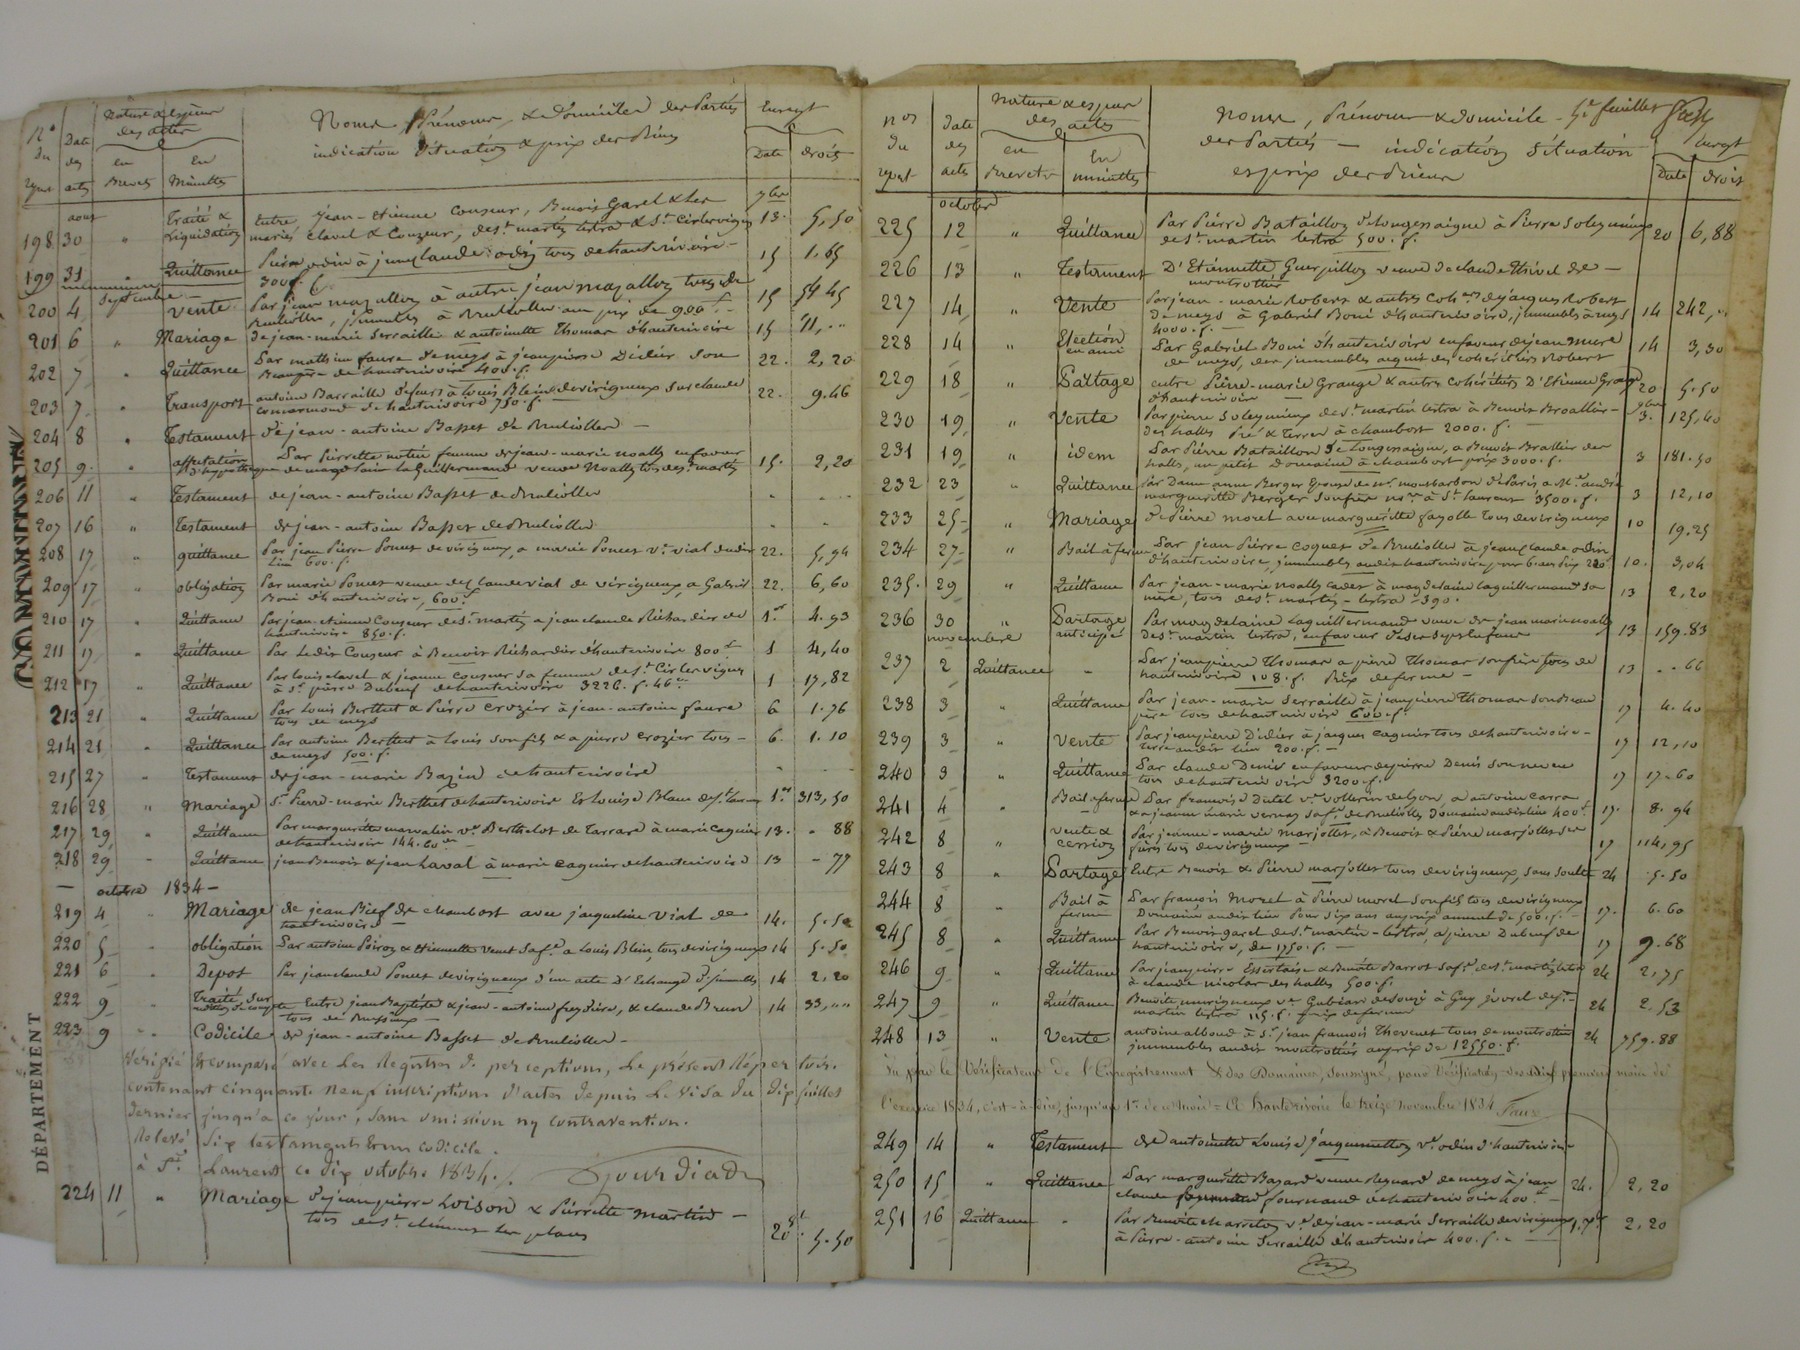 Nos du repert
Date des actes
Nature & espèce des actes
en Brevets
En Minuttes
Noms, Prénoms, & Domicile des Parties
indication Situation & prix des Biens
Enregt
Date
droits
aout
7bre
198 30 " Traité & Liquidation entre Jean-Etienne Couzeur, Benoit Garel & les
mariés Clavel & Couzeur, de St martin lestra & St Cirlevigny 13. 5,50
199 31 " Quittance
300 f. 15 1.65
Septembre
200 4 " vente Par jean mazallon à autre jean mazallon tous de
Bruliolles, immeubles à Brulioles au prix de 900 f. 15 54 45
201 6 " Mariage de jean-marie Serraille & antoinette Thomas d'hauterivoire 15 11,..
202 7 " Quittance Par mathieu faure de meys à jeanpierre Didier son
Beaupère de hauterivoire 400 f. 22. 2,20
203 7 " Transport antoine Barraille à Louis Blein de virigneux sur claude
de hauterivoire 750 f. 22. 9.46
204 8 " Testament de jean-antoine Basset de Brulioles
205 9 " d'hypothèque Par Pierrette femme de jean-marie noally en faveur
de magdelaine Laguillermand veuve Noally tous de St martin 15. 2,20
206 11 " Testament de jean-antoine Basset de Brulioles
207 16 " Testament de jean-antoine Basset de Brulioles
208 17 " quittance Par jean Pierre Poncet de virigneux, a marie Poncet ve vial dudit
lieu 600 f. 22. 5,94
209 17 " obligation Par marie Poncet veuve de claude vial de virigneux, a Gabriel
Boni d'hauterivoire, 600 f 22. 6,60
210 17 " Quittance Par jean-etienne Couzeur de St martin a jean claude Richardier de
hauterivoire 850 f. 1.er 4.93
211 17 " Quittance Par Ledit Couzeur à Benoit Richardier d'hauterivoire 800 f 1 4,40
212 17 " Quittance Par louis clavel & jeanne couzeur sa femme de St Cirlevigny
à St pierre Dubeuf de hauterivoire 3226. f. 46 c. 1 17,82
213 21 " Quittance Par Louis Berthet & Pierre Crozier à jean-antoine faure
tous de meys 6 1.76
214 21 " Quittance Par antoine Berthet à louis son fils & a pierre crozier tous
de meys 500. f. 6. 1.10
215 27 " Testament de jean-marie Bazin de hauterivoire
216 28 " Mariage St Pierre-marie Berthet de hauterivoire Et Louise Blanc de St laurent 1.er 313,50
217 29 " Quittance Par marguerite ve Berthelot de Tarrare à marie cagnier
de hauterivoire 144.60 c. 13. - 88
218 29 " Quittance jean Benoit & jean Laval à marie cagnier de hauterivoire 13 - 77
octobre 1834
219 4 " Mariage de jean Bief de chambost avec jacqueline vial de
hauterivoire 14. 5.50
220 5 " obligation Par antoine Poizon & Etiennette venet sa fe a Louis Blein, tous de virigneux 14 5.50
221 6 " Depot Par jeanclaude Poncet de virigneux d'un acte D'Echange d'immeubles 14 2,20
222 9 " Traité sur reddition de compte Entre jean Baptiste & jean-antoine freydière, & claude Brun
tous de 14 33,""
223 9 " Codicile de jean-antoine Basset de Brulioles
Vérifié & comparé avec les Registres de perceptions, Le présent Répertoire
contenant cinquante neuf inscriptions d'actes depuis Le Visa du dix juillet
dernier jusqu'à ce jour, sans omission ny contravention.
Relevé Six testaments & un codicile.
à St Laurent ce dix octobre 1834. Jourdiadn
224 11 " Mariage de jeanpierre Loison & Pierrette Martin
tous de St clément les places 20 8. 5.50
DÉPARTEMENT
Nos du repert
Date des actes
nature & espèce des actes
en Brevets
En minuttes
Noms, Prénoms & domicile
des Parties — indication Situation
et prix des Biens
5e feuillet
Enregt
Date
droits
octobre
225 12 " Quittance Par Pierre Bataillon de longessaigne à Pierre Soleymieux
de St martin lestra 500. f. 20 6,88
226 13 " Testament D'Etiennette Guerpillon veuve de claude Thivel de
montrottier
227 14 " Vente Par jean-marie Robert & autres Cohers de jacques Robert
de meys à Gabriel Boni d'hauterivoire, immeubles à meys
4000. f. 14 242,"
228 14 " Election en ami Par Gabriel Boni d'hauterivoire en faveur de jean mure
de meys, des immeubles acquis des cohéritiers Robert 14 3,30
229 18 " Partage entre Pierre-marie Grange & autres Cohéritiers D'Etienne Grange
d'hauterivoire 20 5.50
230 19 " Vente Par pierre Soleymieux de St martin lestra à Benoit Brallier
des halles Pré & Terres à chambost 2000. f. 9bre 3. 125,40
231 19 " idem Par Pierre Bataillon de Longessaigne, a Benoit Brallier des
halles, un petit Domaine à chambost prix 3000. f. 3 181.50
232 23 " Quittance Par Dame anne Berger Epouse de mr de Paris a Mr andré
marguerite Berger son frère nre à St laurent 3500. f. 3 12,10
233 25 " Mariage de Pierre moret avec marguerite fayolle tous de virigneux 10 19.25
234 27 " Bail à ferme Par jean Pierre Coquet de Brulioles à jean claude odin
d'hauterivoire, immeubles audit hauterivoire pour 6 ans prix 220 f 10. 3,04
235 29 " Quittance Par jean-marie noally cadet à magdelaine laguillermand sa
mère, tous de St martin-lestra 390. 13 2,20
236 30 " Partage anticipé Par magdelaine Laguillermand veuve de jean marie noally
de St martin lestra, en faveur de ses sept enfans 13 159.83
novembre
237 2 Quittance - Par jeanpierre Thomas a pierre Thomas son frère tous de
hauterivoire 108. f. Prix de ferme 13 - . 66
238 3 " Quittance Par jean-marie Serraille à jeanpierre Thomas son Beau
père tous de hauterivoire 600. f. 17 4.40
239 3 " Vente Par jeanpierre Didier à jacques cagnier tous de hauterivoire
terre audit lieu 200. f. 17 12,10
240 3 " Quittance Par claude Denis en faveur de pierre Denis son neveu
tous de hauterivoire 3200. f. 17 17.60
241 4 " Bail a ferme Par françois Dutel ve vollerin de lyon, a antoine carra
& a jeanne marie vernay sa fe de Brulioles Domaine audit lieu 400 f. 17. 8.94
242 8 " vente & cession Par jeanne-marie marjollet, à Benoit & Pierre marjollet ses
frères tous de virigneux 17 114,95
243 8 " Partage Entre Benoit & Pierre marjollet tous de virigneux, sans soulte 24 5.50
244 8 " Bail à ferme Par françois Moret à Pierre moret son fils tous de virigneux
Domaine audit lieu Pour six ans au prix annuel de 500 f. 17. 6.60
245 8 " Quittance Par Benoit garel de St martin-lestra, a pierre Dubeuf de
hauterivoire, de 1750. f. 17 9.68
246 9 " Quittance Par jeanpierre Essertaise & Benoite Barrot sa fe de St martin lestra
à claude nicolas des halles 500 f. 24 2,75
247 9 " Quittance Benoite murigneux ve Gubian de Souzy à Guy de St
martin lestra 115. f. prix de ferme 24 2.53
248 13 " Vente antoine alboud à St jean françois Thevenet tous de montrottier
immeubles audit montrottier au prix de 12550. f. 24 759.88
Vu par le Vérificateur de l'Enregistrement & des Domaines, soussigné, pour vérification des dix premiers mois de
l'exercice 1834, c'est-à-dire, jusqu'au 1er de ce mois = A hauterivoire le treize novembre 1834
249 14 " Testament de antoinette Louise jacquemetton ve odin d'hauterivoire
250 15 " Quittance Par marguerite Bazard veuve Reynard de meys à jean
claude fournand de hauterivoire 400. f. 24. 2,20
251 16 Quittance - Par Benoite charreton ve de jean-marie Serraille de virigneux
à Pierre-antoine Serraille d'hauterivoire 400. f. 2,20